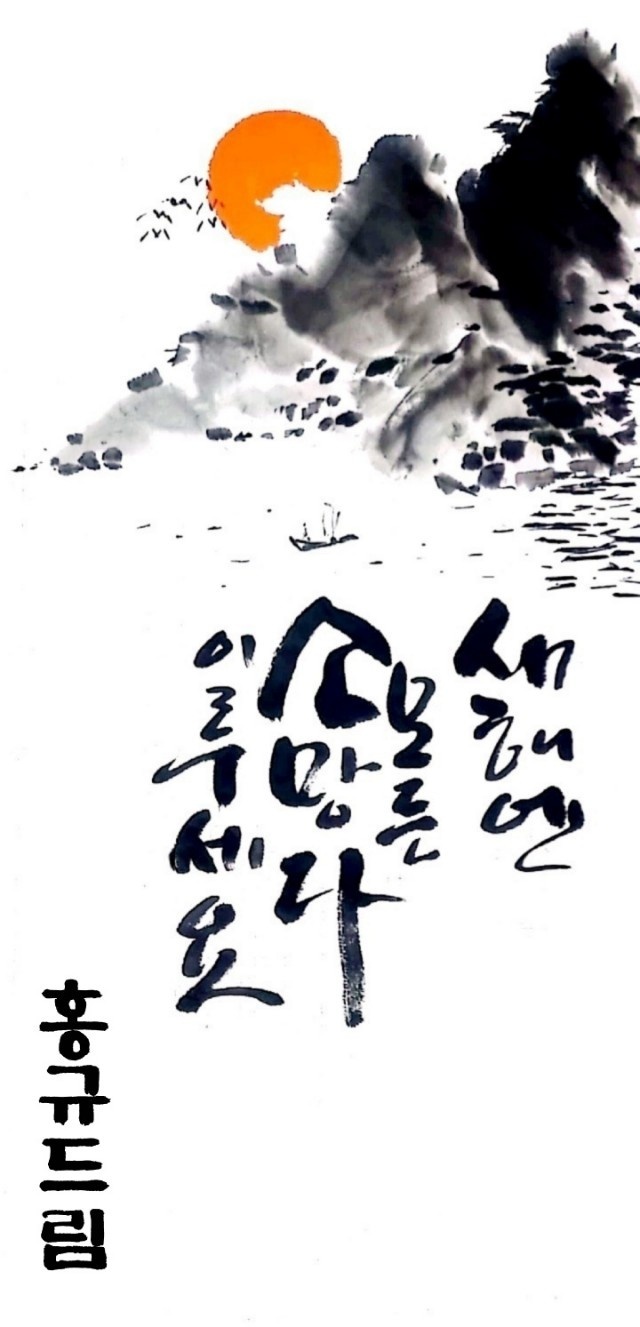 새해엔
모든
소망다
이루세요
홍규드림